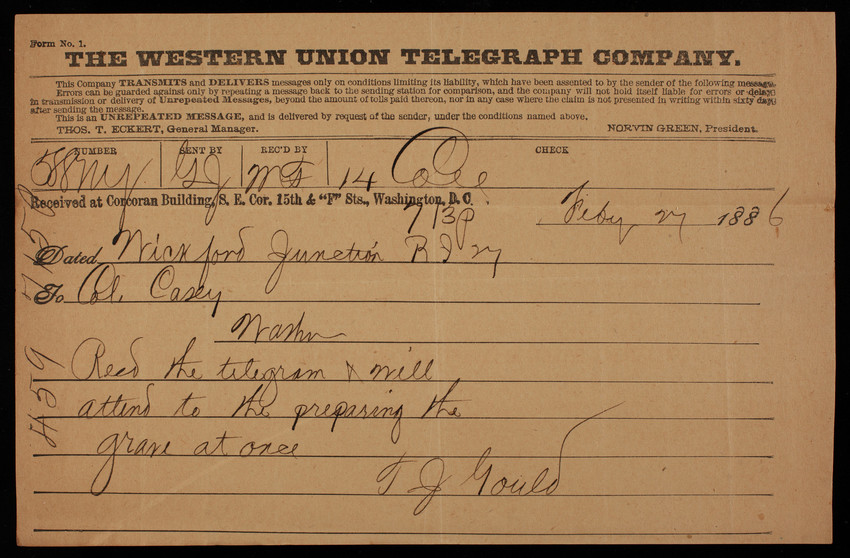 Form No. 1.
THE WESTERN UNION TELEGRAPH COMPANY.
This Company TRANSMITS and DELIVERS messages only on conditions limiting its liability, which have been assented to by the sender of the following message.
Errors can be guarded against only by repeating a message back to the sending station for comparison, and the company will not hold itself liable for errors or delays
in transmission or delivery of Unrepeated Messages, beyond the amount of tolls paid thereon, nor in any case where the claim is not presented in writing within sixty days
after sending the message.
This is an UNREPEATED MESSAGE, and is delivered by request of the sender, under the conditions named above.
THOS. T. ECKERT, General Manager. NORVIN GREEN, President.
NUMBER SENT BY REC'D BY CHECK
14
Received at Corcoran Building, S. E. Cor. 15th & "F" Sts., Washington, D. C.
713P Feby 27 1886
Dated Wickford Junction R I 27
To Col. Casey
Washn
Recd the telegram & will
attend to the preparing the
grave at once
T J Gould
459